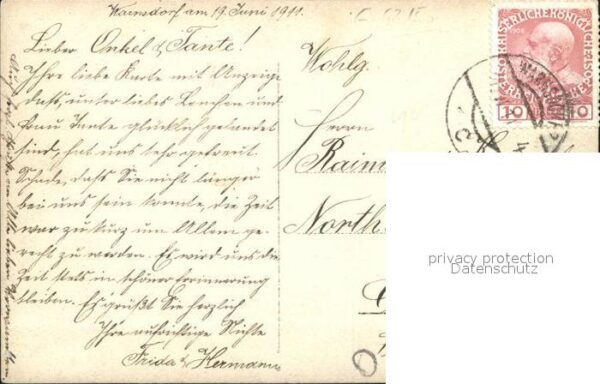 Warnsdorf am 19. Juni 1911.
Lieber Onkel & Tante!
Ihre liebe Karte mit Anzeige
dass, unser liebes Lenchen und
Frau Tante glücklich gelandet
sind, hat uns sehr gefreut.
Schade, dass Sie nicht länger
bei uns sein konnte, die Zeit
war zu kurz um Allem ge-
recht zu werden. Es wird uns die
Zeit stets in schöner Erinnerung
bleiben. Es grüßt Sie herzlich
Ihre aufrichtige Nichte
Frida & Hermann
Wohlg.
Herrn
Raim
North
KAISERLICHE KÖNIGLICHE
1908
10 10
WARNSDORF
privacy protection
Datenschutz